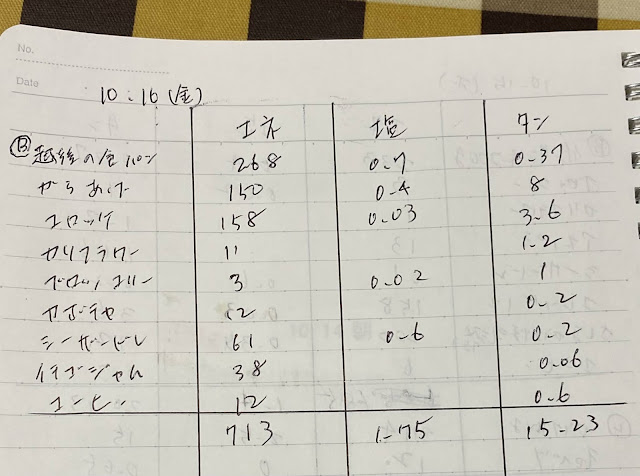 No.
Date
10.16(金)
エネ 塩 タン
Ⓑ越後の金パン 268 0.7 0.37
からあげ 150 0.4 8
コロッケ 158 0.03 3.6
カリフラワー 11 1.2
ブロッコリー 3 0.02 1
カボチャ 12 0.2
シーザードレ 61 0.6 0.2
イチゴジャム 38 0.06
コーヒー 12 0.6
713 1.75 15.23